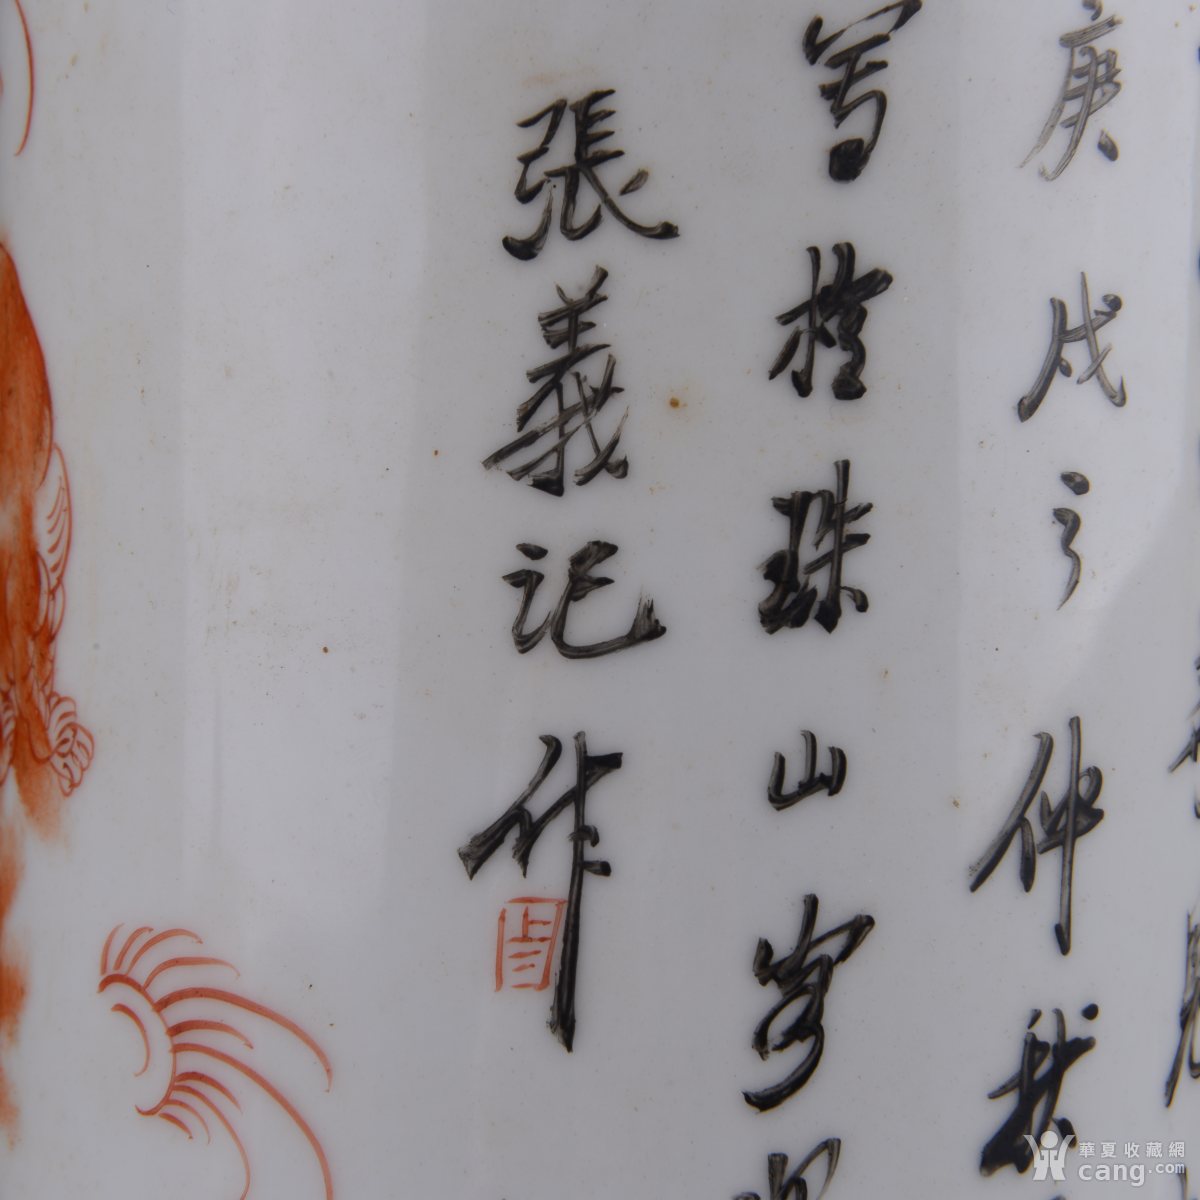 庚戌之仲秋
寫於珠山客
張義記作
華夏收藏網
cang.com